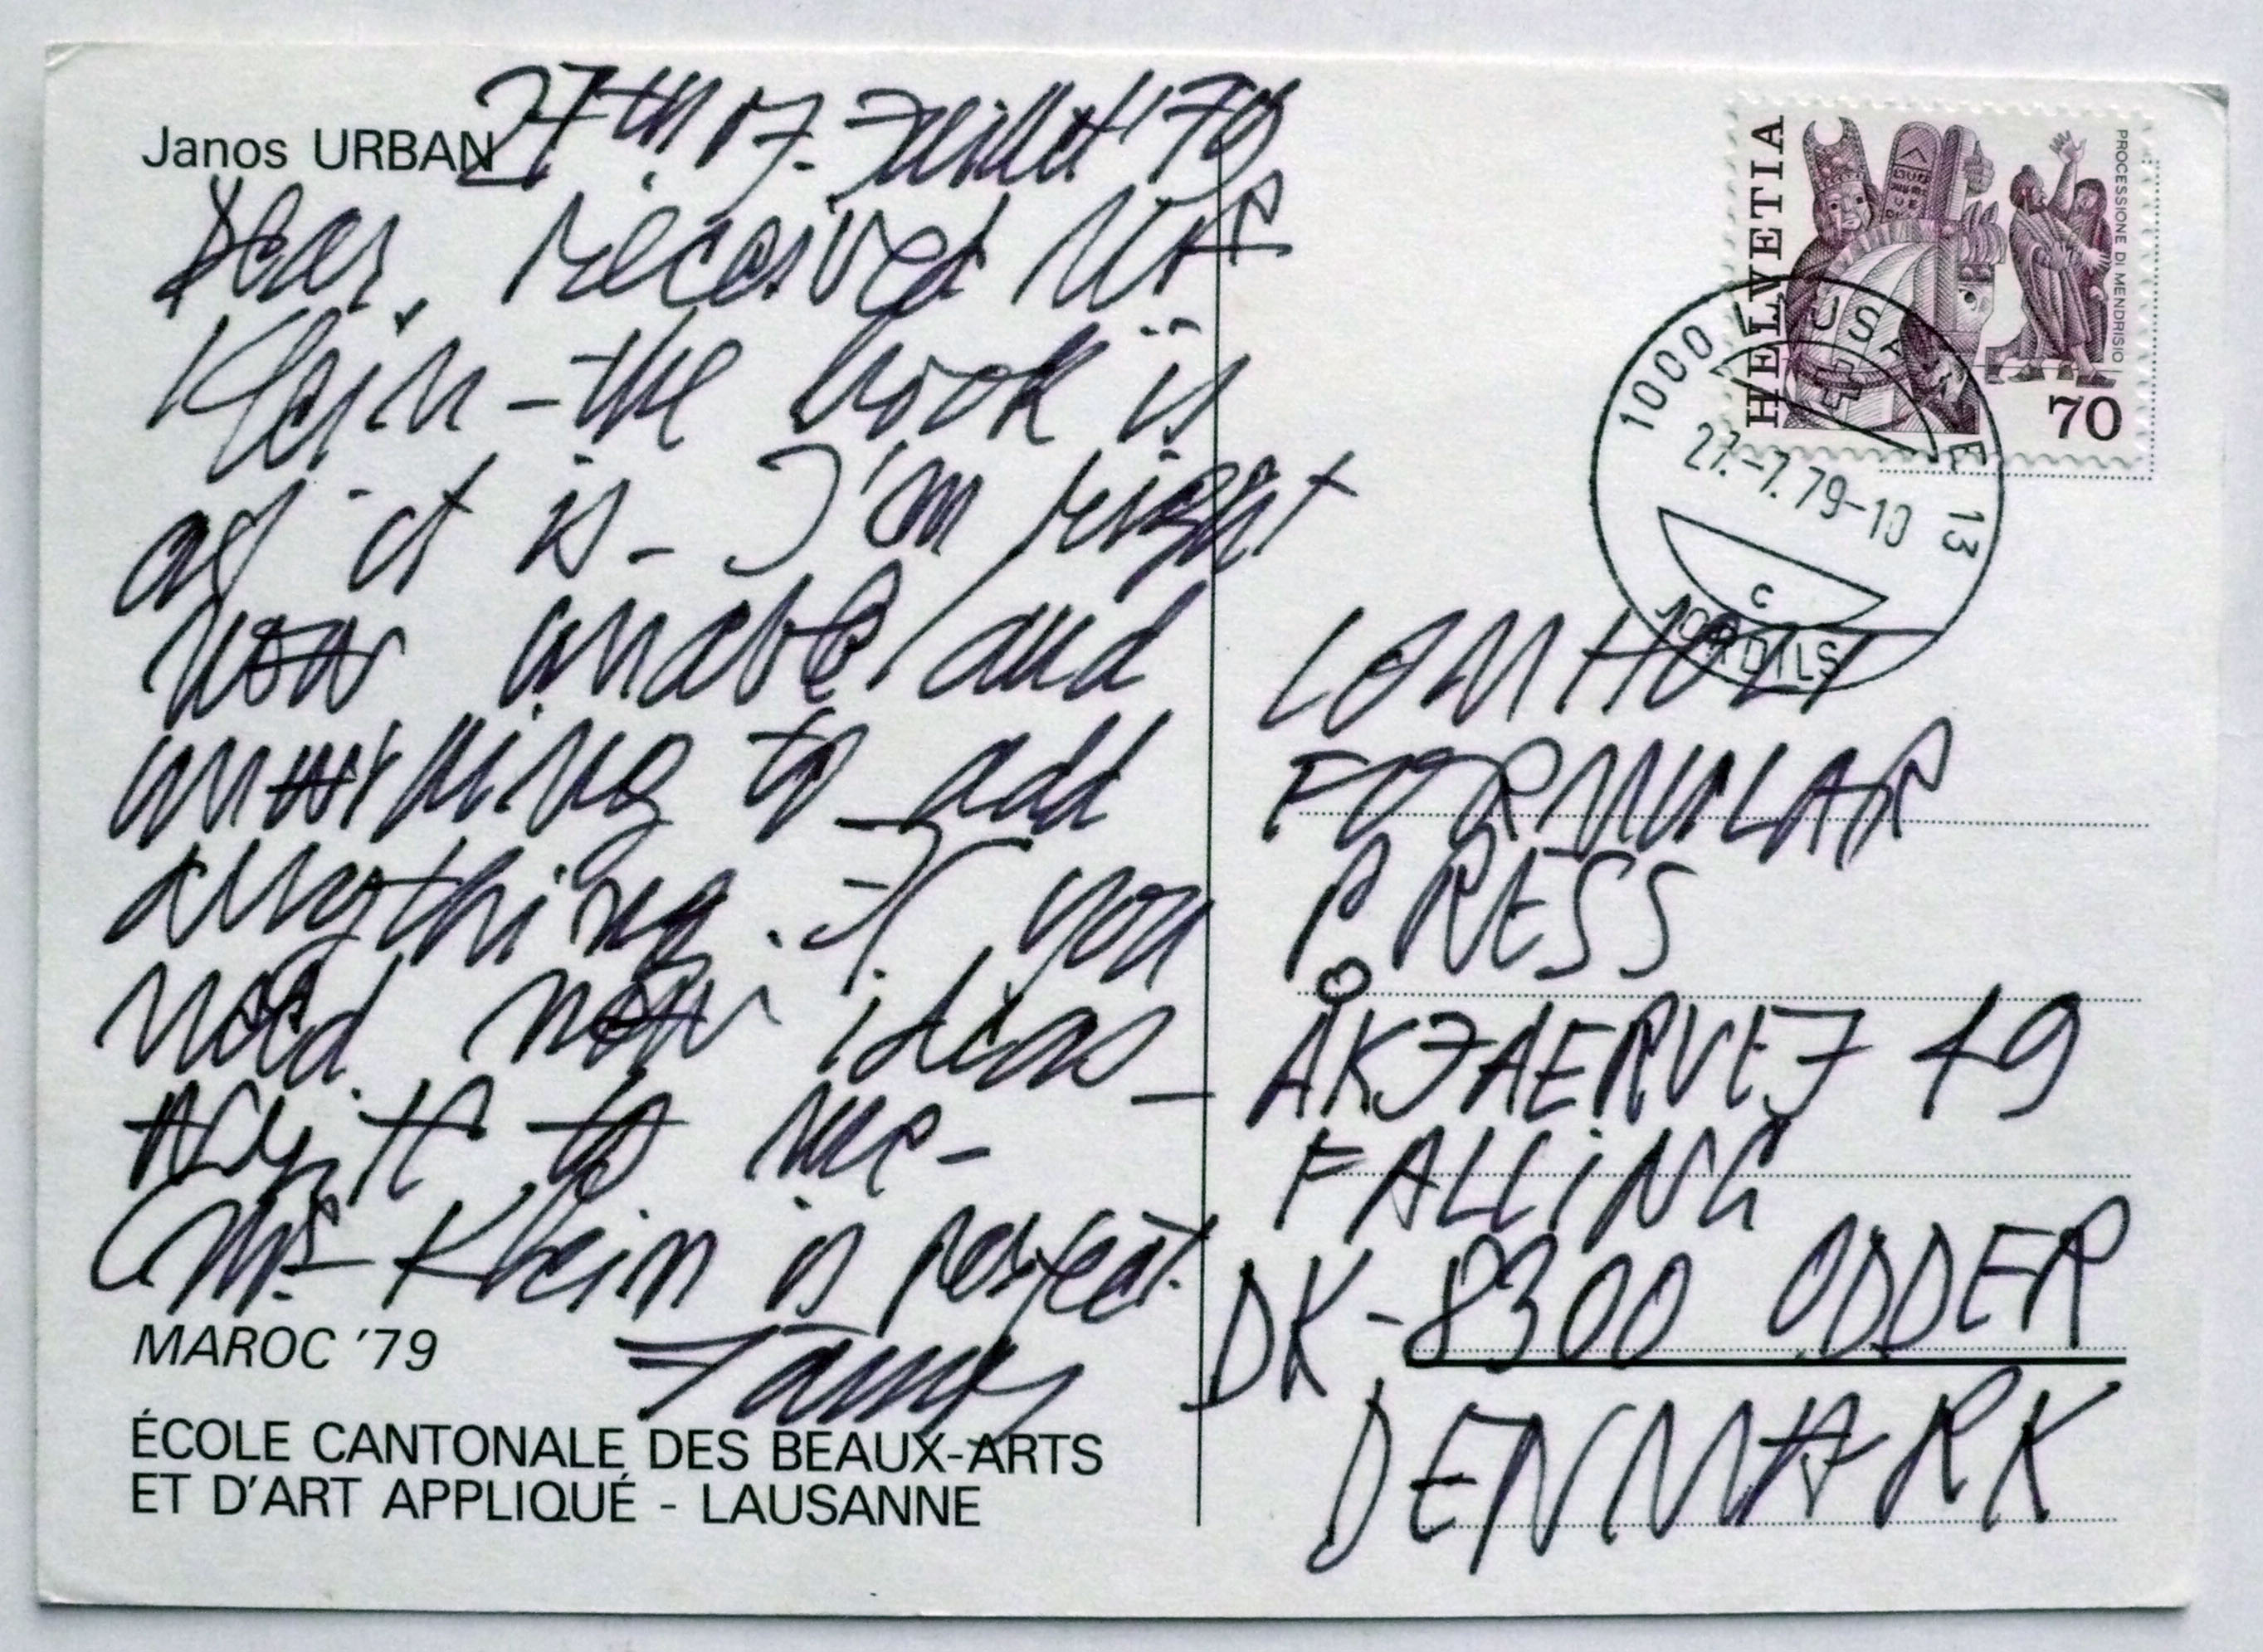 Janos URBAN
27th of Juillet '79
Dear, received MR
Klein - the book is
as it is - I'm right
now unable/and
unwilling to add
anything. If you
need new ideas -
try it to me -
(Mr Klein is perfect.
MAROC '79
ÉCOLE CANTONALE DES BEAUX-ARTS
ET D'ART APPLIQUÉ - LAUSANNE
HELVETIA
PROCESSIONE DI MENDRISIO
70
1000 LAUSANNE 13
27.-7.79-10
C
JORDILS
LOMHOLT
FORMULAR
PRESS
ÅKJAERVEJ 19
FALLiNG
DK-8300 ODDER
DENMARK